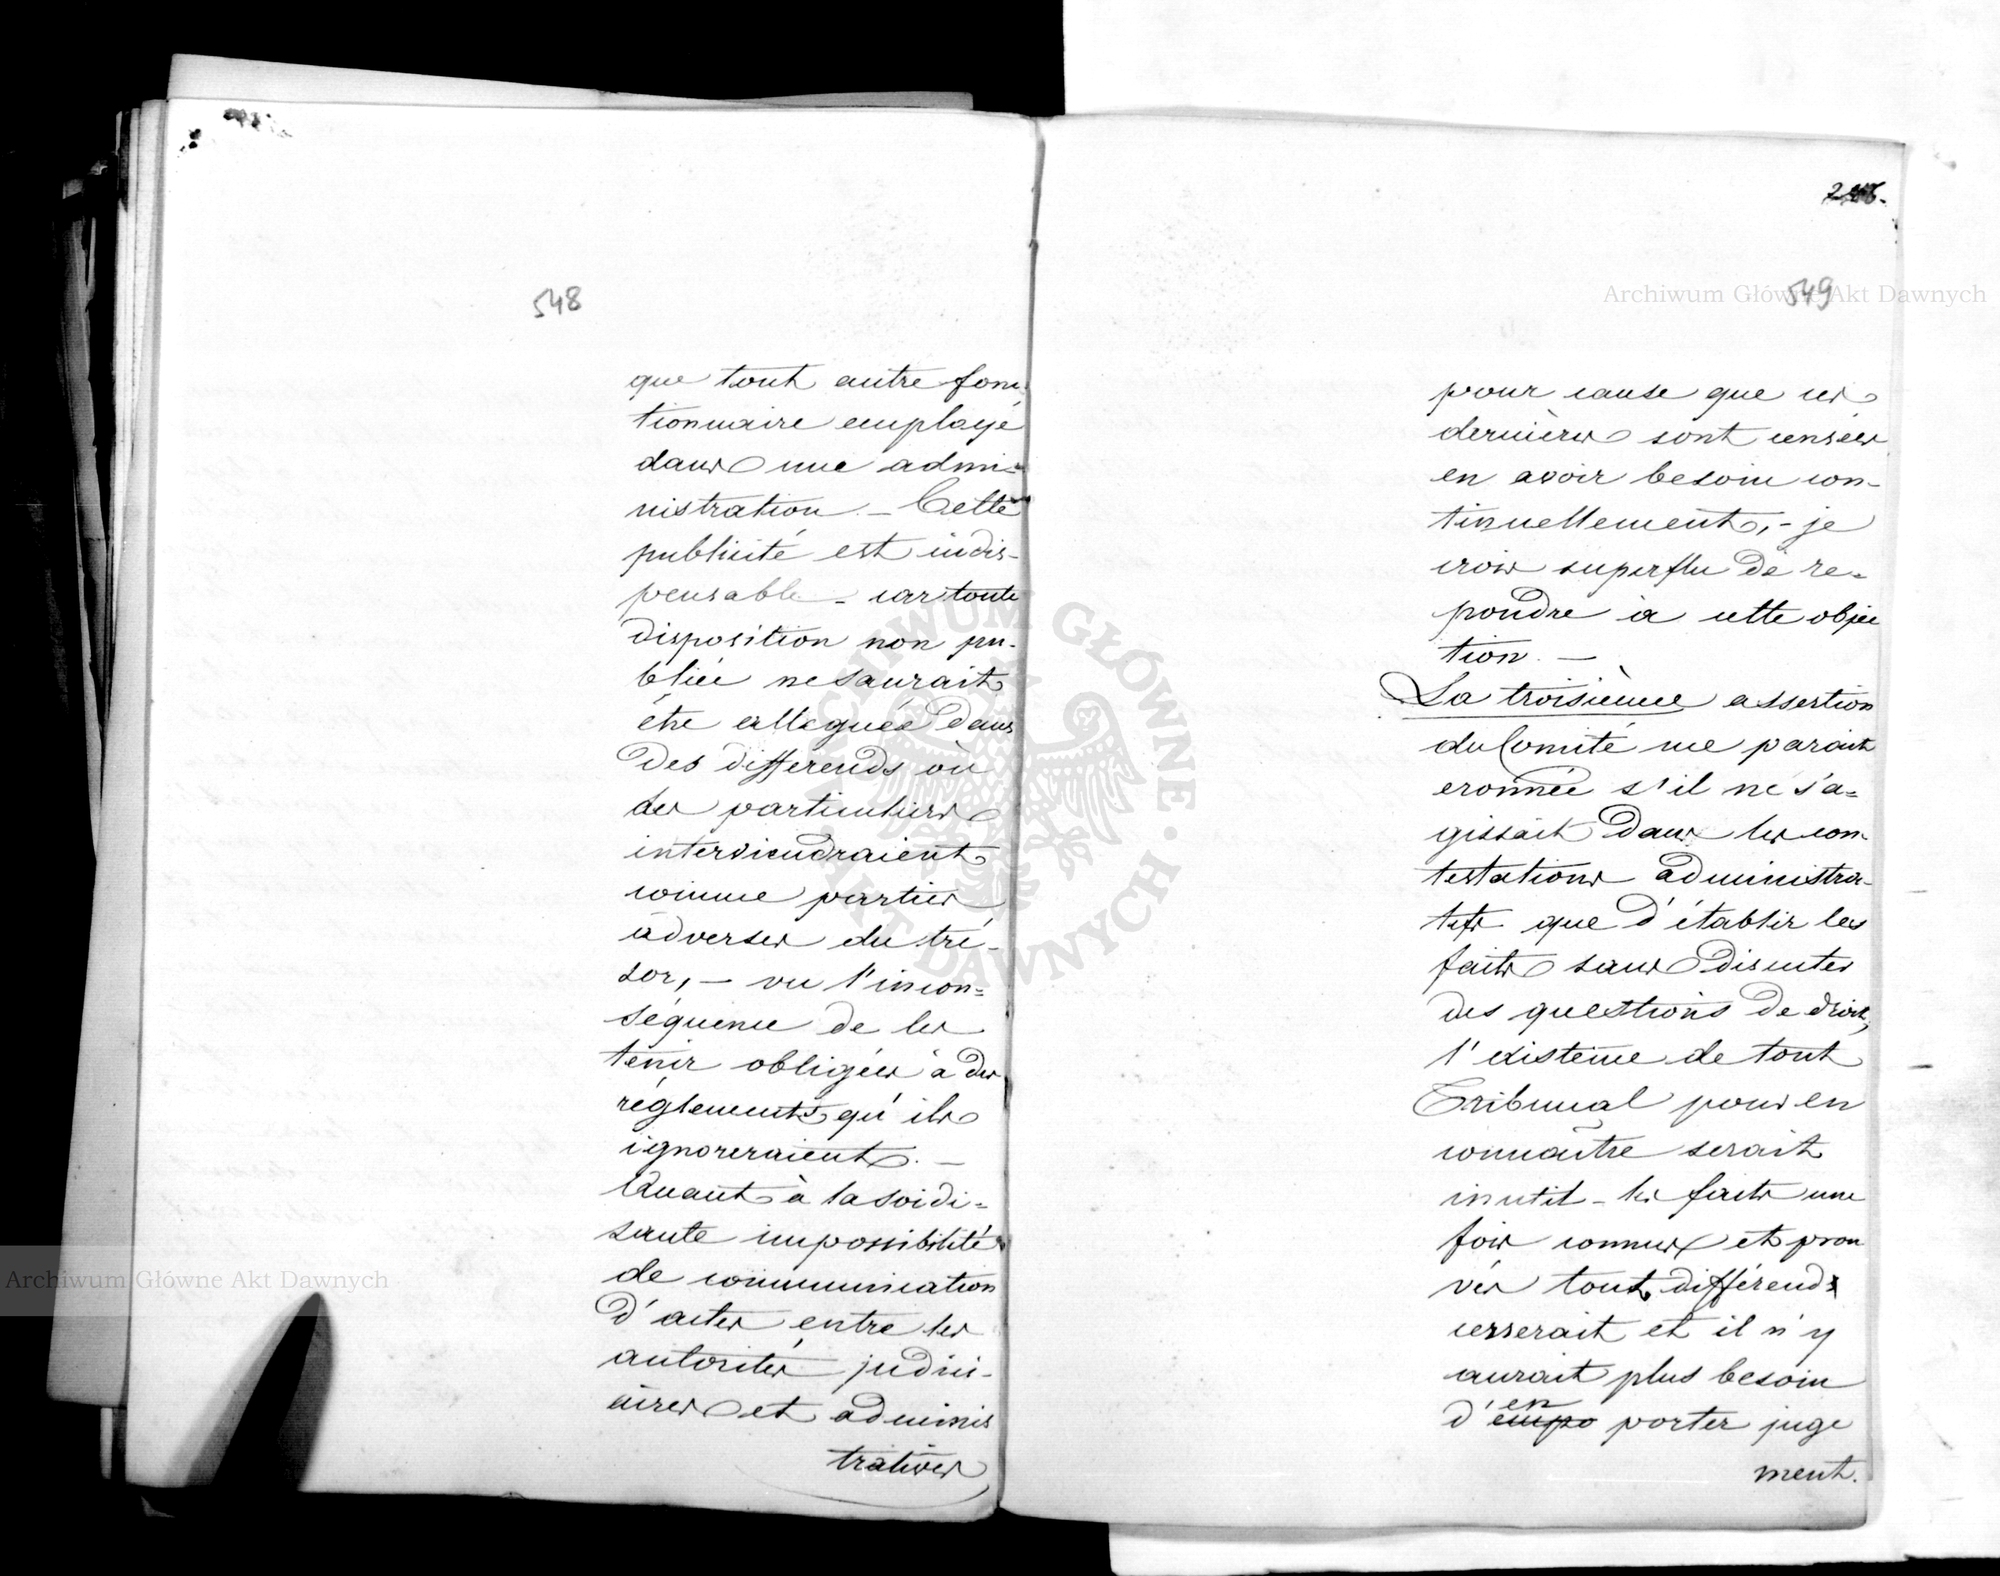 548
que tout autre fonc
tionnaire employé
dans une admi-
nistration. — Cette
publicité est indis-
pensable — car toute
disposition non pu-
bliée ne saurait
être alleguée dans
des differends où
des particuliers
interviendraient
comme parties
adverses du tré-
sor, — vu l'incon=
séquence de les
tenir obligées à des
réglements qu'ils
ignoreraient. —
Quant à la soidi=
sante impossibilité
de communication
d'actes entre les
autorités judici-
aires et adminis
tratives
549
pour cause que ces
dernières sont censées
en avoir besoin con-
tinuellement, - je
crois superflu de re-
pondre à cette objec
tion. —
La troisième assertion
du Comité me parait
eronnée s'il ne s'a=
gissait dans les con-
testations administra-
tifs que d'établir les
faits sans discuter
des questions de droit,
l'existence de tout
Tribunal pour en
connaître serait
inutil - les faits une
fois connus et prou
vés tout différends
cesserait et il n'y
aurait plus besoin
en
d'empo porter juge
ment.
Archiwum Główne Akt Dawnych
Archiwum Główne Akt Dawnych
ARCHIWUM GŁÓWNE AKT DAWNYCH